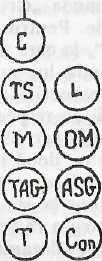 C
TS L
M DM
TAG ASG
T Con